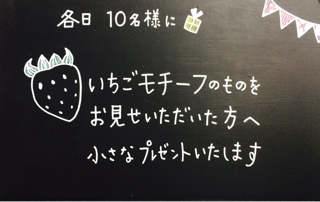 各日 10名様に
いちごモチーフのものを
お見せいただいた方へ
小さなプレゼントいたします